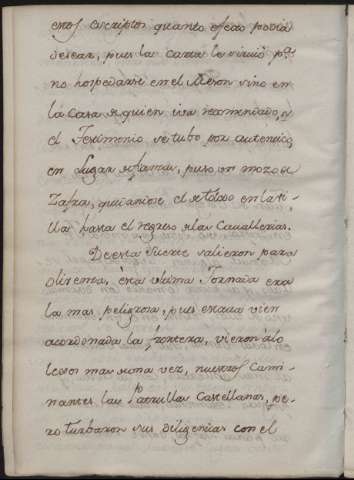 estos escriptos quanto efecto podia
desear, pues la Carta le sirvió pª
no hospedarse en el Meson sino en
la Casa de quien iva recomendado, y
el Testimonio se tubo por autentico
en Lugar de fama, pues un mozo de
Zafra, quedandose el de toldo en la
lla hasta el regreso de las Cavallerias.
De esta suerte salieron para
Olivenza, esta ultima Jornada era
la mas peligrosa, pues estava vien
acordonada la frontera, vieron á lo
lexos mas de una vez, nuestros Cami-
nantes las Patrullas Castellanas, pe-
ro turbaron sus diligencias con el